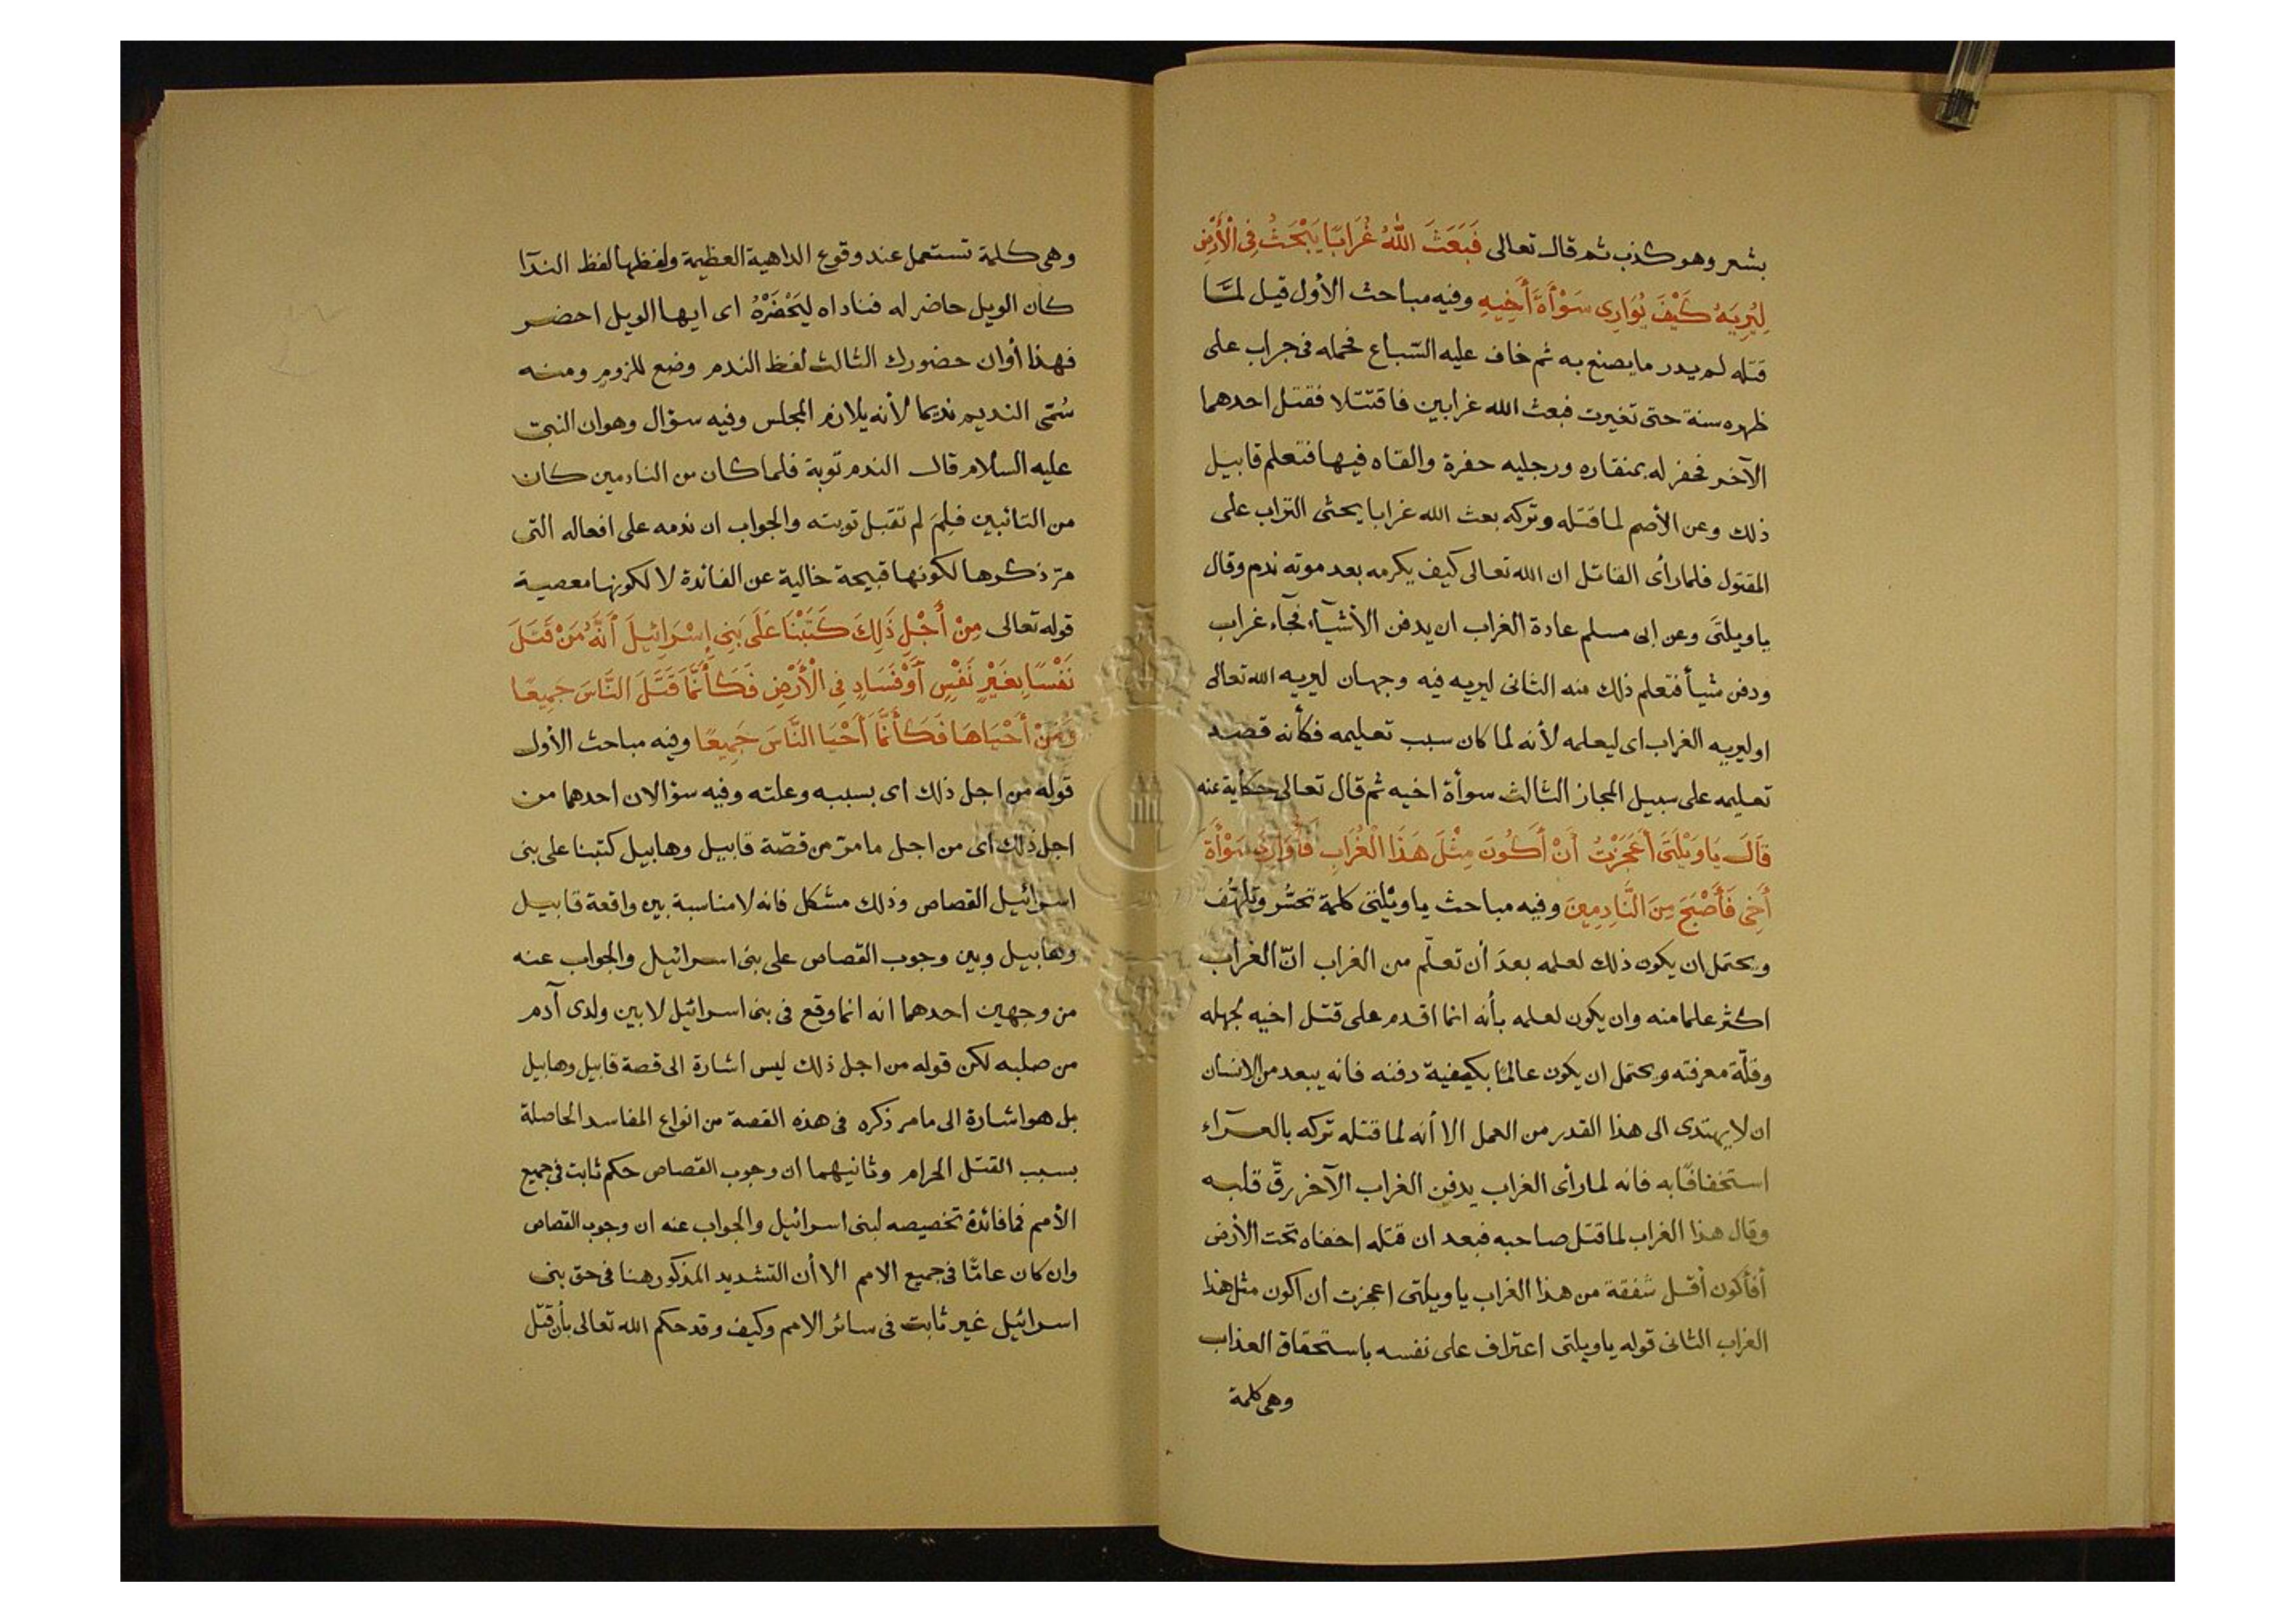 بشعر وهو كذب ثم قال تعالى فَبَعَثَ اللَّهُ غُرَابًا يَبْحَثُ فِى الْأَرْضِ
لِيُرِيَهُ كَيْفَ يُوَارِى سَوْأَةَ أَخِيهِ وفيه مباحث الأول قيل لمَّا
قتله لم يدر ما يصنع به ثم خاف عليه السّباع فحمله فى جراب على
ظهره سنة حتى تغيرت فبعث الله غرابين فاقتتلا فقتل احدهما
الآخر فحفر له بمنقاره ورجليه حفرة والقاه فيها فتعلم قابيل
ذلك وعن الأصم لما قتله وتركه بعث الله غرابا يحثى التراب على
المقتول فلما رأى القاتل ان الله تعالى كيف يكرمه بعد موته ندم وقال
ياويلتَى وعن ابى مسلم عادة الغراب ان يدفن الأشيآء فجآء غراب
ودفن شيأ فتعلم ذلك منه الثانى ليريه فيه وجهان ليريه الله تعالى
او ليريه الغراب اى ليعلمه لأنه لما كان سبب تعليمه فكأنه قصد
تعليمه على سبيل المجاز الثالث سوأة اخيه ثم قال تعالى حكاية عنه
قَالَ يَاوَيْلَتَى أَعَجَزْتُ أَنْ أَكُونَ مِثْلَ هَذَا الْغُرَابِ فَأُوَارِىَ سَوْأَةَ
أَخِى فَأَصْبَحَ مِنَ النَّادِمِينَ وفيه مباحث ياويْلتى كلمة تحسُّر وتلهُّف
ويحتمل ان يكون ذلك لعلمه بعدَ أن تعلّم من الغراب انّ الغراب
اكثر علما منه وان يكون لعلمه بأنه انما اقدم على قتل اخيه لجهله
وقلّة معرفته ويحتمل ان يكون عالمًا بكيفية دفنه فانه يبعد من الانسان
ان لا يهتدى الى هذا القدر من العمل الا أنه لما قتله تركه بالعرآء
استخفافًا به فانه لما رأى الغراب يدفن الغراب الآخر رقّ قلبه
وقال هذا الغراب لما قتل صاحبه فبعد ان قتله اخفاه تحت الأرض
أفأكون أقل شفقة من هذا الغراب ياويلتى اعجزت ان اكون مثل هذا
الغراب الثانى قوله ياويلتى اعتراف على نفسه باستحقاق العذاب
وهى كلمة
وهى كلمة تستعمل عند وقوع الداهية العظيمة ولفظها لفظ الندآ
كان الويل حاضر له فناداه ليَحْضَرْهُ اى ايها الويل احضر
فهذا أوان حضورك الثالث لفظ الندم وضع للزوم ومنه
سُمّى النديم نديما لأنه يلازم المجلس وفيه سؤال وهو ان النبى
عليه السلام قال الندم توبة فلما كان من النادمين كان
من التائبين فلِمَ لم تقبل توبته والجواب ان ندمه على افعاله التى
مرّ ذكرها لكونها قبيحة خالية عن الفائدة لا لكونها معصية
قوله تعالى مِنْ أَجْلِ ذَلِكَ كَتَبْنَا عَلَى بَنِى إِسْرَائِيلَ أَنَّهُ مَنْ قَتَلَ
نَفْسًا بِغَيْرِ نَفْسٍ أَوْ فَسَادٍ فِى الْأَرْضِ فَكَأَنَّمَا قَتَلَ النَّاسَ جَمِيعًا
وَمَنْ أَحْيَاهَا فَكَأَنَّمَا أَحْيَا النَّاسَ جَمِيعًا وفيه مباحث الأول
قوله من اجل ذلك اى بسببه وعلته وفيه سؤالان احدهما من
اجل ذلك اى من اجل ما مرّ من قصّة قابيل وهابيل كتبنا على بنى
اسرائيل القصاص وذلك مشكل فانه لا مناسبة بين واقعة قابيل
وهابيل وبين وجوب القصاص على بنى اسرائيل والجواب عنه
من وجهين احدهما انه انما وقع فى بنى اسرائيل لا بين ولدى آدم
من صلبه لكن قوله من اجل ذلك ليس اشارة الى قصة قابيل وهابيل
بل هو اشارة الى ما مر ذكره فى هذه القصة من انواع المفاسد الحاصلة
بسبب القتل الحرام وثانيهما ان وجوب القصاص حكم ثابت فى جميع
الأمم فما فائدة تخصيصه لبنى اسرائيل والجواب عنه ان وجوب القصاص
وان كان عامًّا فى جميع الامم الا أن التشديد المذكور هنا فى حق بنى
اسرائيل غير ثابت فى سائر الامم وكيف وقد حكم الله تعالى بأن قتل